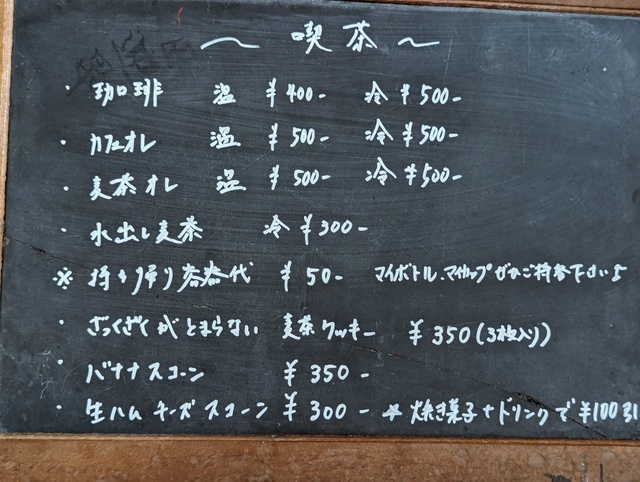 ～ 喫茶 ～
・珈琲 温 ¥400- 冷 ¥500-
・カフェオレ 温 ¥500- 冷 ¥500-
・麦茶オレ 温 ¥500- 冷 ¥500-
・水出し麦茶 冷 ¥300-
※持ち帰り容器代 ¥50- マイボトル、マイカップぜひご持参下さい♪
・ざっくざくがとまらない 麦茶クッキー ¥350(3枚入り)
・バナナスコーン ¥350-
・生ハムチーズスコーン ¥300- ☆焼き菓子+ドリンクで¥100引